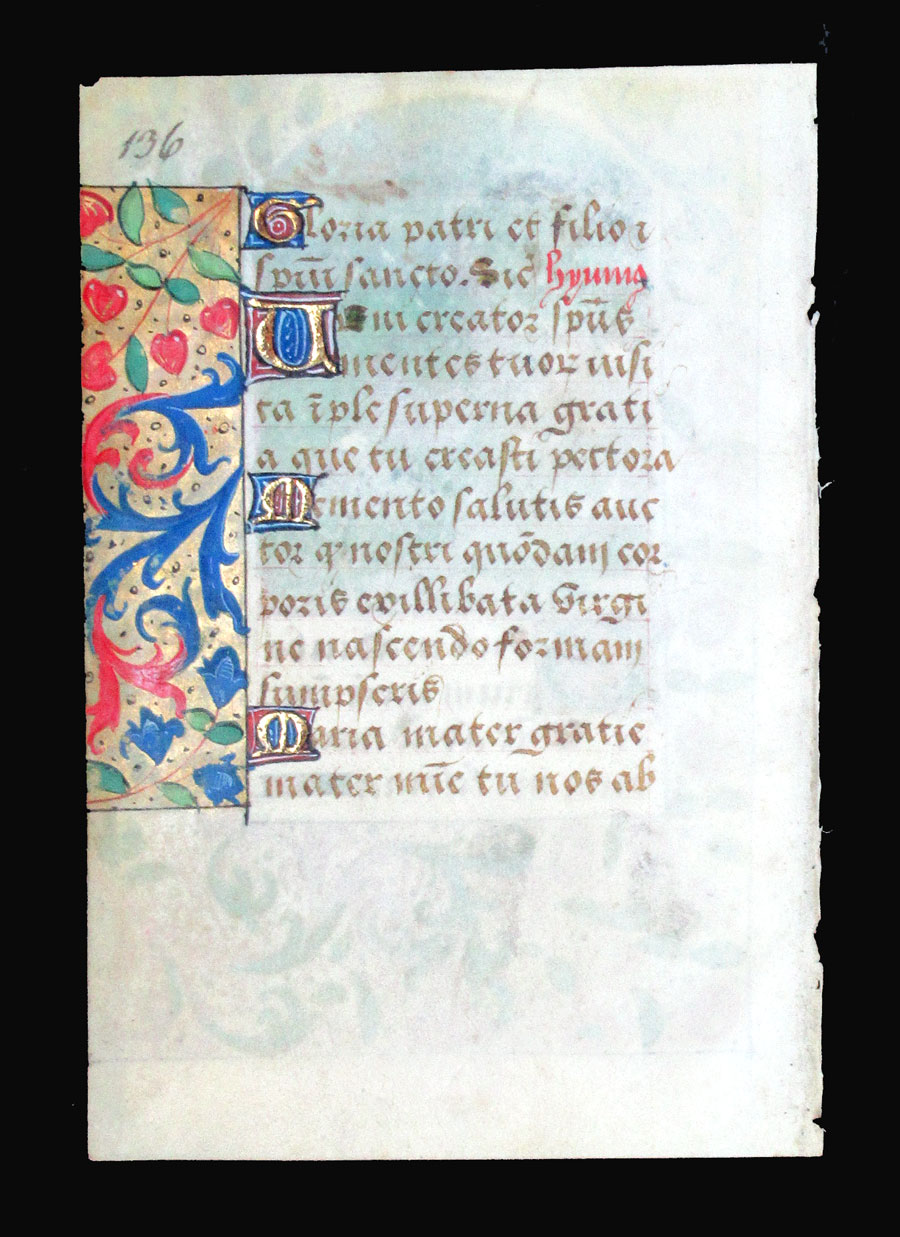 136
Gloria patri et filio ⁊
sp̄ui sancto. Sic̄ hymnꝯ
Veni creator sp̄us
mentes tuoꝝ uisi
ta īple superna grati
a que tu creasti pectora
Memento salutis auc
tor ꝙ nostri quōdam cor
poris exillibata virgi
ne nascendo formam
sumpseris
Maria mater gratie
mater mīe tu nos ab